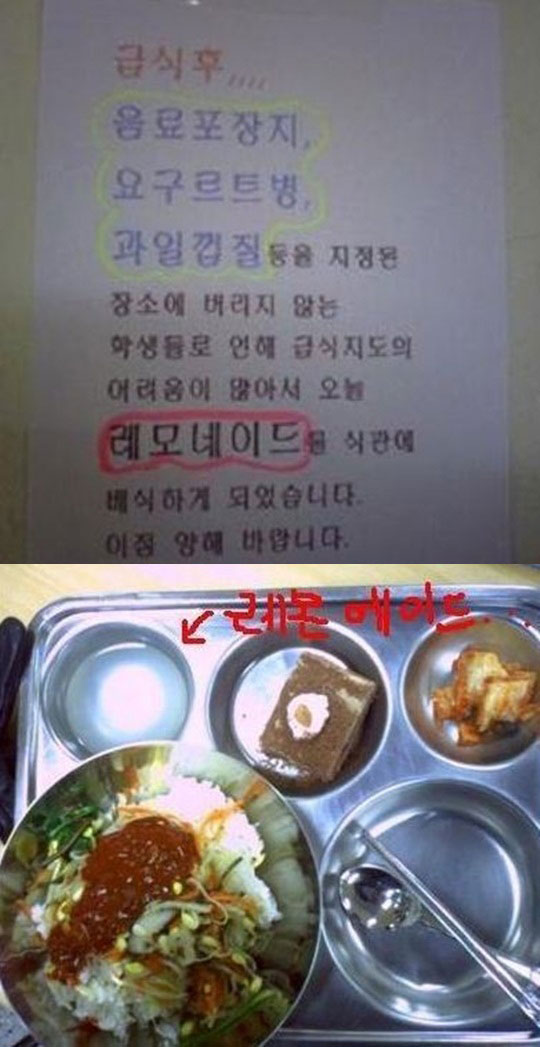 급식후,,,,
음료포장지,
요구르트병,
과일껍질등을 지정된
장소에 버리지 않는
학생들로 인해 급식지도의
어려움이 많아서 오늘
레모네이드를 식판에
배식하게 되었습니다.
이점 양해 바랍니다.
↙ 레몬에이드...